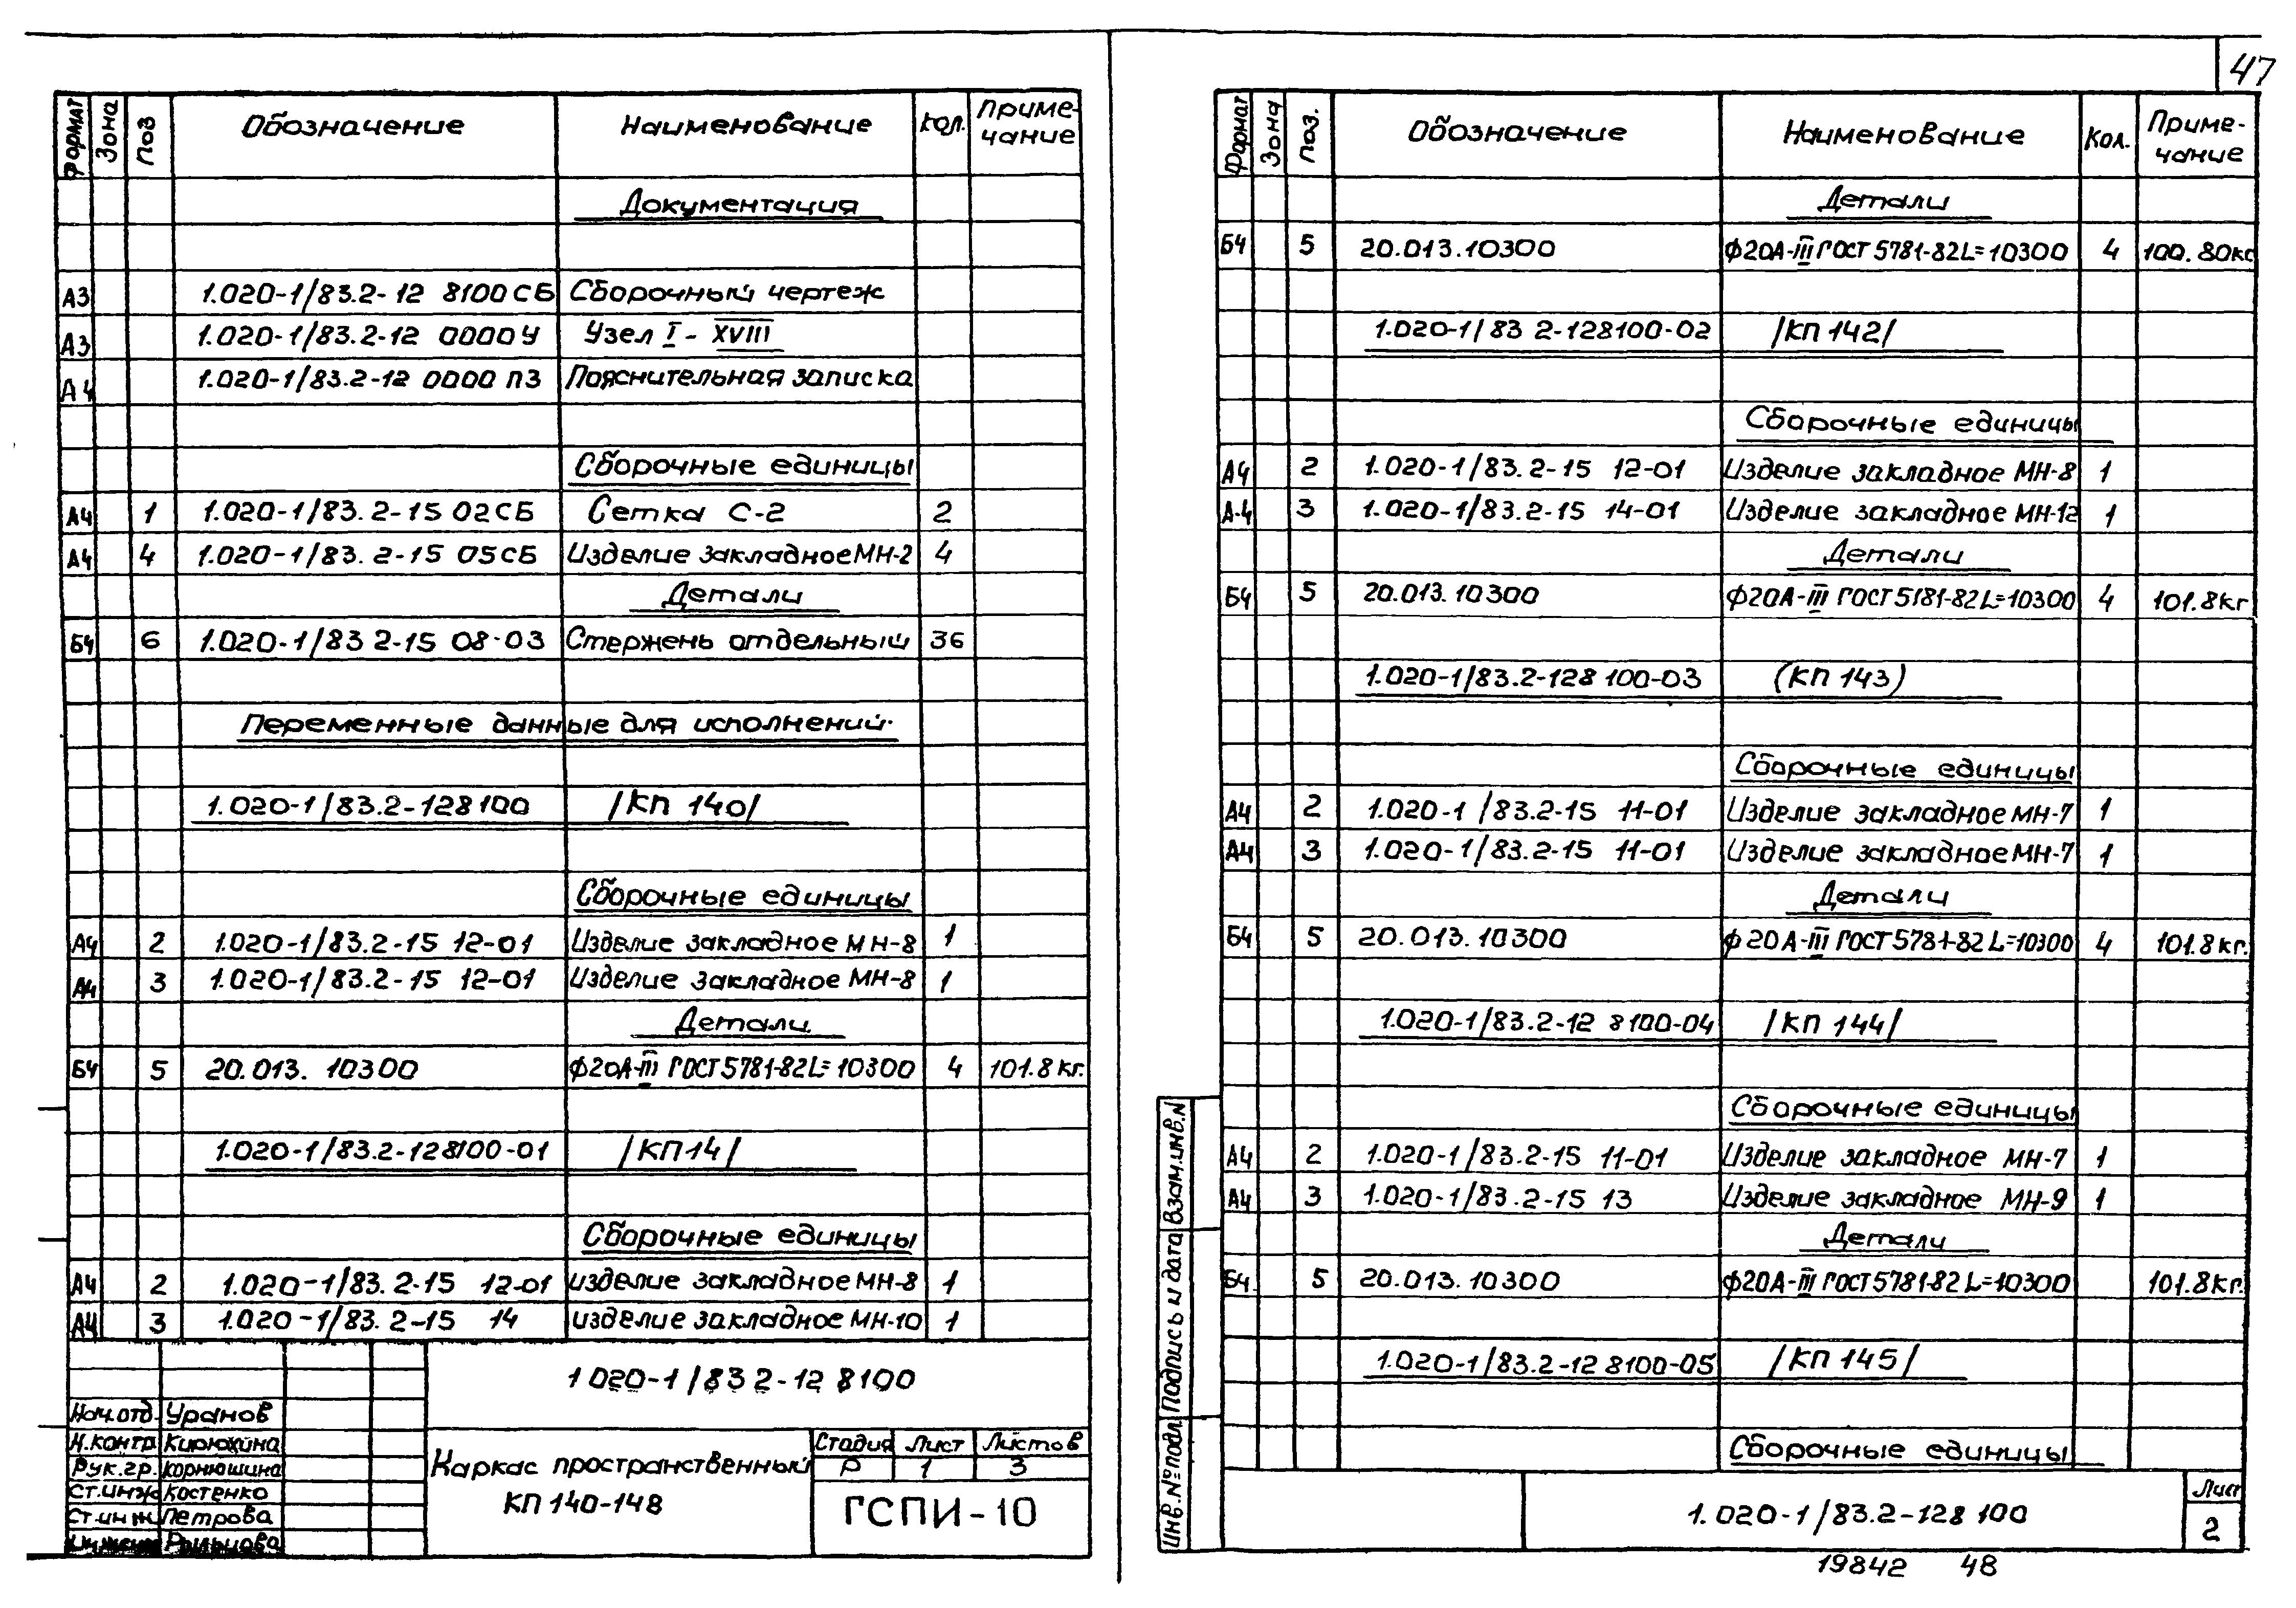 47
Формат Зона Поз Обозначение Наименование Кол. Приме-
чание
Документация
А3 1.020-1/83.2-12 8100СБ Сборочный чертеж
А3 1.020-1/83.2-12 0000У Узел I - XVIII
А4 1.020-1/83.2-12 0000 ПЗ Пояснительная записка
Сборочные единицы
А4 1 1.020-1/83.2-15 02СБ Сетка С-2 2
А4 4 1.020-1/83.2-15 05СБ Изделие закладное МН-2 4
Детали
БЧ 6 1.020-1/83 2-15 08-03 Стержень отдельный 36
Переменные данные для исполнений.
1.020-1/83.2-128100 /КП 140/
Сборочные единицы
А4 2 1.020-1/83.2-15 12-01 Изделие закладное МН-8 1
А4 3 1.020-1/83.2-15 12-01 Изделие закладное МН-8 1
Детали
БЧ 5 20.013.10300 ф20А-III ГОСТ5781-82L=10300 4 101.8кг.
1.020-1/83.2-128100-01 /КП14/
Сборочные единицы
А4 2 1.020-1/83.2-15 12-01 изделие закладное МН-8 1
А4 3 1.020-1/83.2-15 14 изделие закладное МН-10 1
1 020-1/83 2-12 8100
Нач.отд. Уранов
Н.контр Кирюхина
Рук.гр. Корнюшина
Ст.инж Костенко
Ст.инж Петрова
Инжене
Каркас пространственный
КП 140-148
Стадия Лист Листов
Р 1 3
ГСПИ-10
Формат Зона Поз. Обозначение Наименование Кол. Приме-
чание
Детали
БЧ 5 20.013.10300 ф20А-III ГОСТ 5781-82L=10300 4 100.80кг
1.020-1/83 2-128100-02 /КП 142/
Сборочные единицы
А4 2 1.020-1/83.2-15 12-01 Изделие закладное МН-8 1
А-4 3 1.020-1/83.2-15 14-01 Изделие закладное МН-12 1
Детали
БЧ 5 20.013.10300 ф20А-III ГОСТ5181-82L=10300 4 101.8кг
1.020-1/83.2-128 100-03 (КП 143)
Сборочные единицы
А4 2 1.020-1/83.2-15 11-01 Изделие закладное МН-7 1
А4 3 1.020-1/83.2-15 11-01 Изделие закладное МН-7 1
Детали
БЧ 5 20.013.10300 ф20А-III ГОСТ5781-82L=10300 4 101.8кг.
1.020-1/83.2-12 8100-04 /КП 144/
Сборочные единицы
А4 2 1.020-1/83.2-15 11-01 Изделие закладное МН-7 1
А4 3 1.020-1/83.2-15 13 Изделие закладное МН-9 1
Детали
БЧ 5 20.013.10300 ф20А-III ГОСТ5781-82L=10300 101.8кг.
1.020-1/83.2-12 8100-05 /КП 145/
Сборочные единицы
Инв.№подл. Подпись и дата Взам.инв.N
1.020-1/83.2-128 100
Лист
2
19842 48